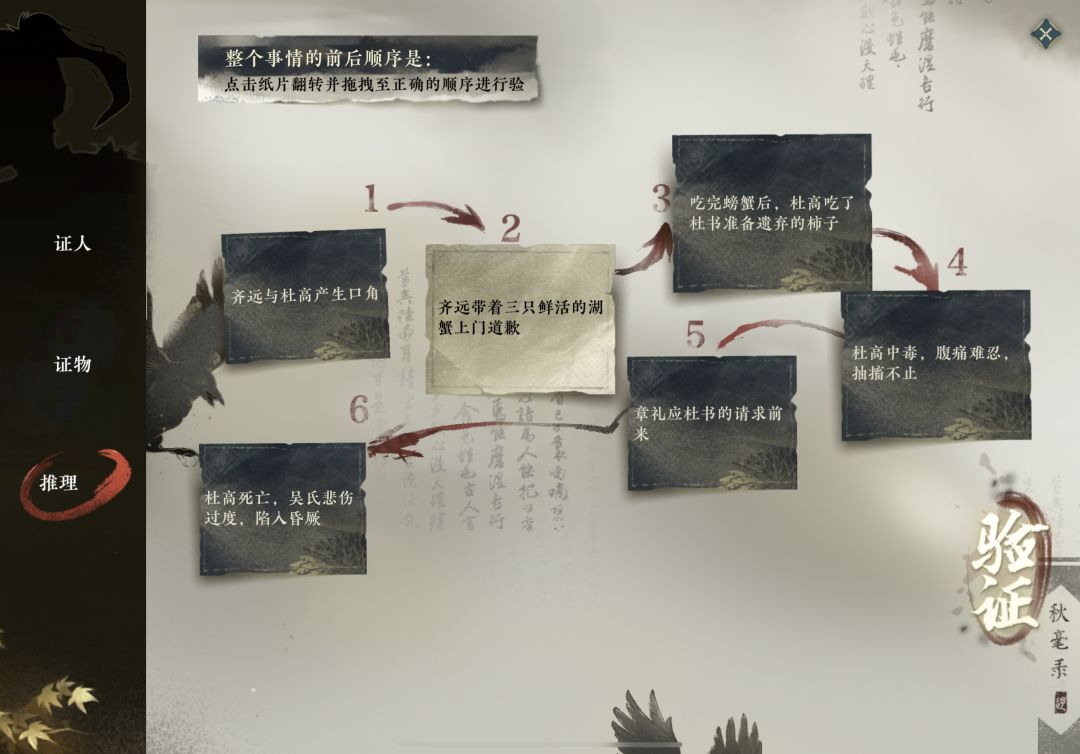 整个事情的前后顺序是：
点击纸片翻转并拖拽至正确的顺序进行验
证人
证物
推理
1
齐远与杜高产生口角
2
齐远带着三只鲜活的湖
蟹上门道歉
3
吃完螃蟹后，杜高吃了
杜书准备遗弃的柿子
4
杜高中毒，腹痛难忍，
抽搐不止
5
章礼应杜书的请求前
来
6
杜高死亡，吴氏悲伤
过度，陷入昏厥
验证